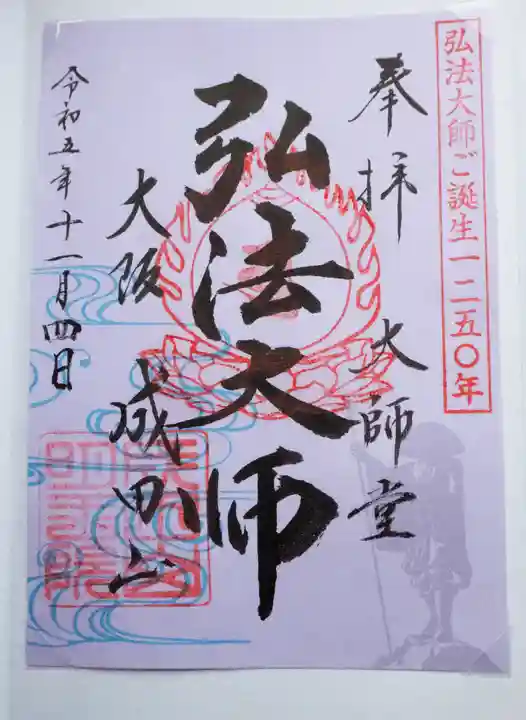 弘法大師ご誕生一二五〇年
奉拝
大師堂
弘法大師
大阪
成田山
令和五年十一月四日